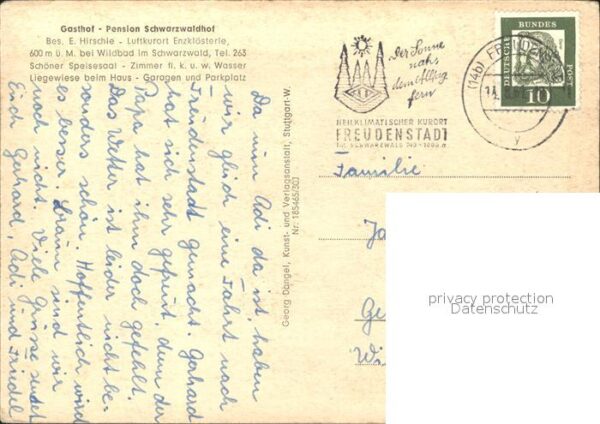 Gasthof - Pension Schwarzwaldhof
Bes. E. Hirschle - Luftkurort Enzklösterle,
600 m ü. M. bei Wildbad im Schwarzwald, Tel. 263
Schöner Speisesaal - Zimmer fl. k. u. w. Wasser
Liegewiese beim Haus - Garagen und Parkplatz
Da nun Adi da ist, haben
wir gleich eine Fahrt nach
Freudenstadt gemacht. Gerhard
hat sich sehr gefreut, denn der
Papa hat ihm doch gefehlt.
Das Wetter ist leider nicht be-
sonders schön. Hoffentlich wird
es besser, braun sind wir
noch nicht. Viele Grüsse sendet
Euch Gerhard, Adi und Friedel
Georg Dangel, Kunst- und Verlagsanstalt, Stuttgart-W.
Nr. 185465/301
Der Sonne
nah
dem Alltag
fern
HEILKLIMATISCHER KURORT
FREUDENSTADT
IM SCHWARZWALD 740-1000 m
(14b) FREUDENSTADT
y
DEUTSCHE
BUNDES
POST
10
Familie
Ja
Ge
Wi
privacy protection
Datenschutz